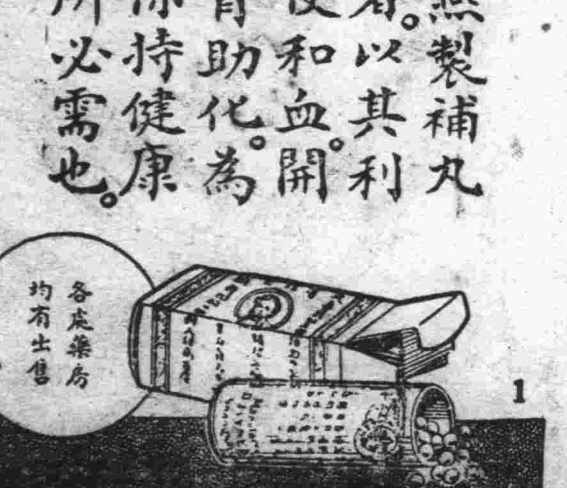 燕製補丸
者。以其利
便和血。開
胃助化。為
保持健康
所必需也。
各處藥房
均有出售
1